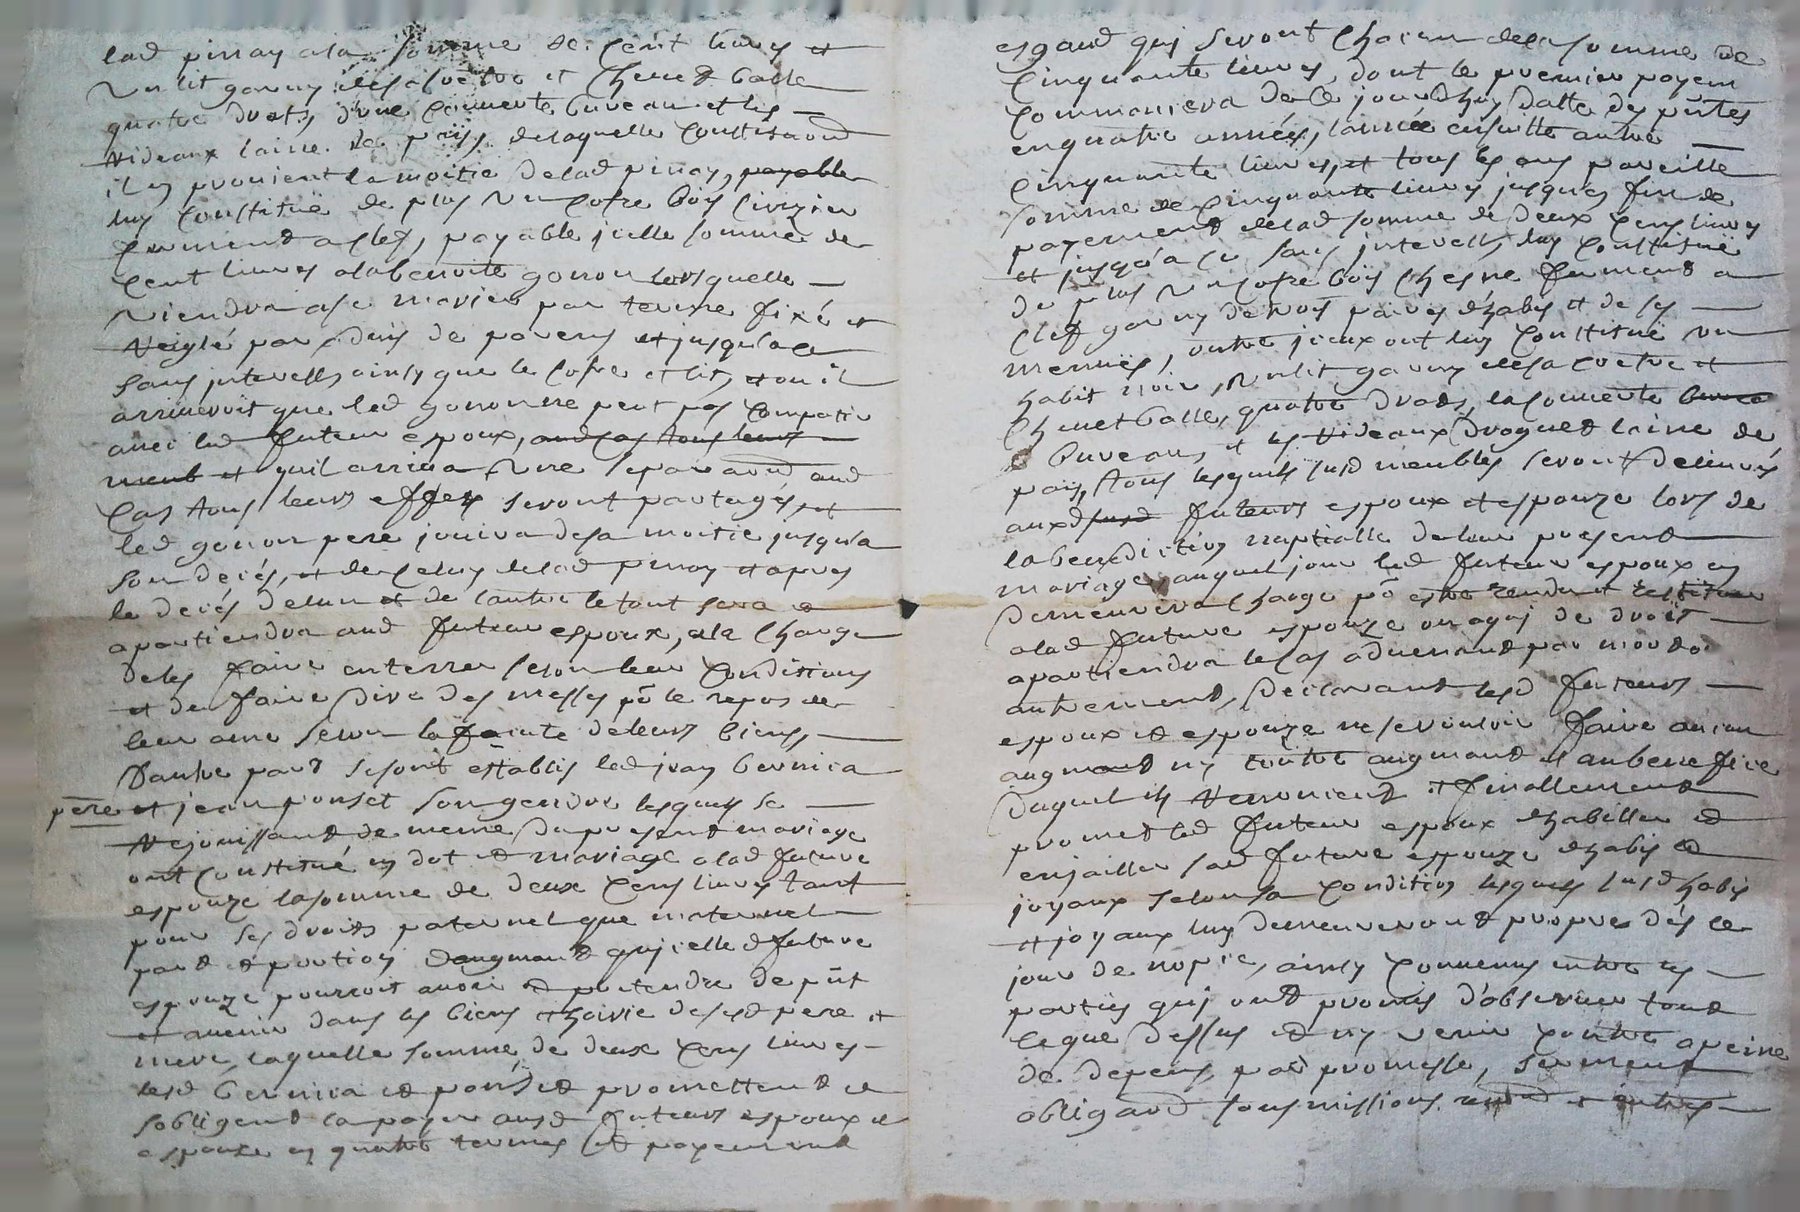 lad pinay a la somme de Cent livres et
Un lit garny desa coetre et Chevet balle
quatre draps, d'une Couverte bureau et les
Rideaux laine de païs, delaquelle Constitution
il en provient la moitié delad pinay, payable
luy Constitue de plus Un Cofre bois Cirizier
fermend a clef, payable jcelle somme de
Cent livres a la benoite gonon lorsquelle
Viendra a se marier par terme fixé et
Reiglé par advis de parens et jusqu'a ce
sans interests ainsy que le Cofre et lit, et ou il
arriveroit que led gonon ne peut pas Compatir
avec led futeur espoux, audcas tous leurs
meub et quil arriva Une separation aud
Cas tous leurs effets seront partagés, et
led gonon pere jouira desa moitié jusqu'a
son decés, et de Celuy delad pinay et apres
le decés delun et de lautre le tout sera et
apartiendra aud futeur espoux, a la Charge
deles faire enterrer selon leur Conditions
et de faire dire des messes po le repos de
leur ame selon la faculté deleurs biens,
Dautre part sesont establis led jean bernica
père et jean ponset son gendre lesquels se
Rejouissant de meme du present mariage
ont Constitué en dot et mariage a lad future
espouze lasomme de deux Cens livres tant
pour ses droits paternel que maternel
part et portion daugmant qujcelle d future
espouze pourroit avoir et pretendre de pnt
et avenir dans les biens et hoirie desesd pere et
mere, laquelle somme de deux Cens livres
lesd bernica et ponset promettent et
sobligent la payer ausd futeurs espoux et
espouze en quatre termes et payement
esgaud quj seront Chacun dela somme de
Cinquante livres, dont le premier payem
Commancera de Ce jourdhuy datte des pntes
en quatre années, lannée ensuitte autre
Cinquante livres, et tous les ans pareille
somme de Cinquante livres jusques fin de
payement delad somme de deux Cens livres
et jusqu'a ce sans jnterests luy Constitue
de plus Un Cofre bois Chesne fermend a
Clef garny de trois paires dhabis et de ses
menues, outre jceux ont luy Constitue un
habit noir, Un lit garny desa Coetre et
Chevet balle, quatre draps, la Couverte bure
bureau, et les Rideaux droguet laine de
païs, tous lesquels susd meubles seront delivrés
auxd susd futeurs espoux et espouze lors de
la benediction nuptialle de leur present
mariage, auquel jour led futeur espoux en
demeurera Charge po estre rendu et restituer
a lad future espouze ou a quj de droit
apartiendra le Cas advenant par mort ou
autrement, declarant lesd futeurs
espoux et espouze ne se vouloir faire aucun
augmant ny Contre augmant et au benefice
duquel ils Renoncent et finallement
promet led futeur espoux dhabiller et
enjailler sad future espouze dhabis et
joyaux selon sa Condition lesquels susd habis
et joyaux luy demeureront propre dés ce
jour de nopce, ainsy Convenus entre les
parties quj ont promis d'observer tout
Ceque dessus et ny venir Contre a peine
de depens, par promesse, serment
obligaon sousmissions